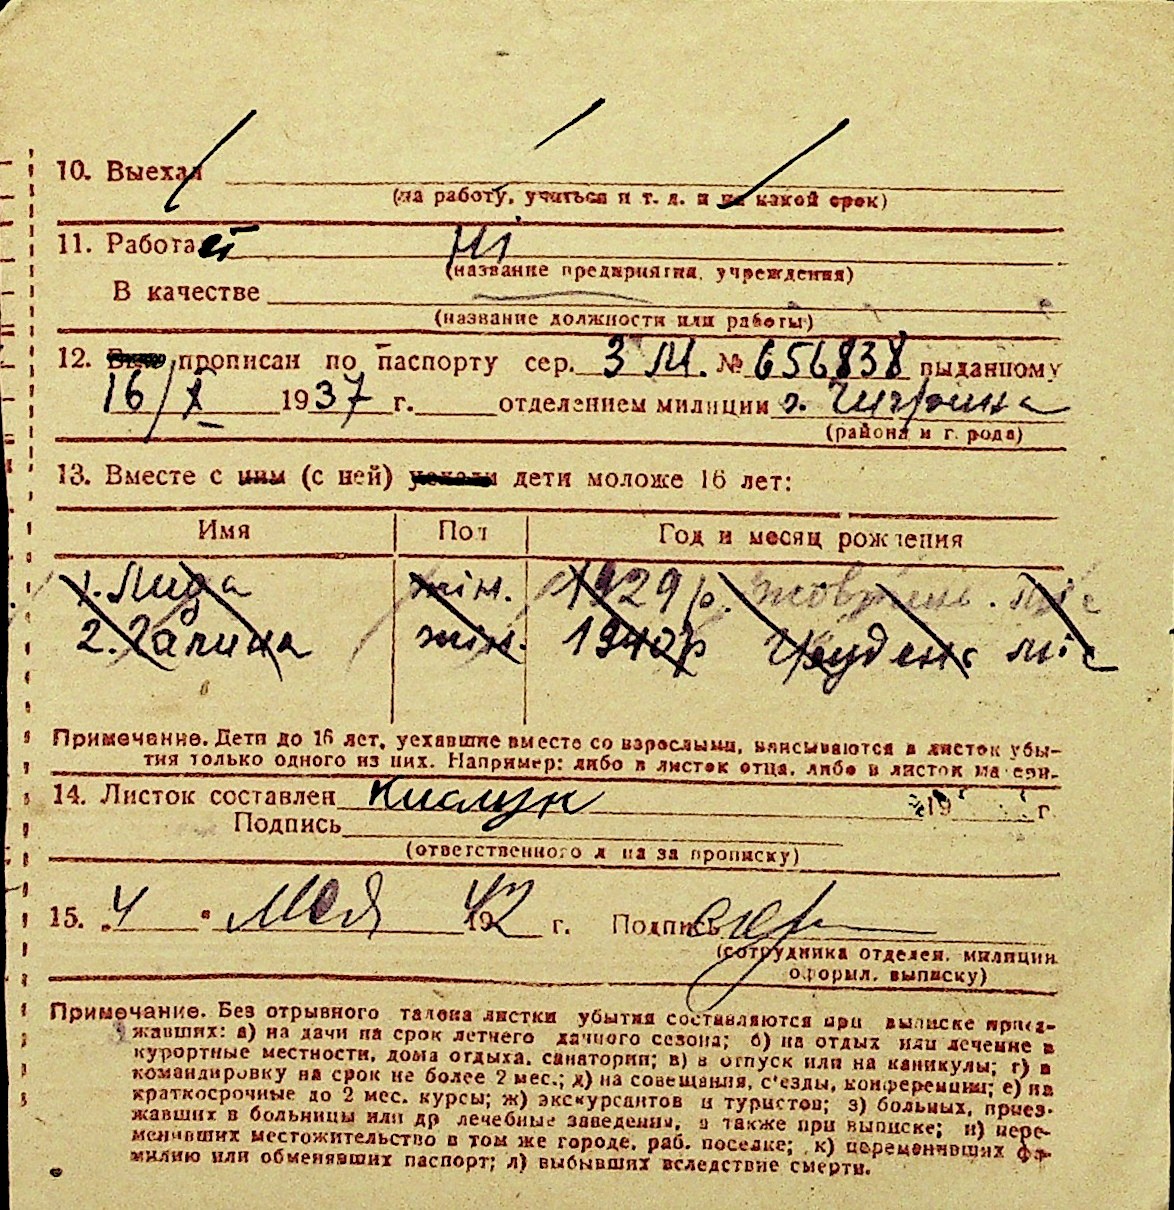 10. Выехал
(на работу, учиться и т. д. и на какой срок)
11. Работает Ні
(название предприятия, учреждения)
В качестве
(название должности или работы)
12. прописан по паспорту сер. ЗМ. № 656838 выданному
16/X 1937 г. отделением милиции о. Чигрина
(района и города)
13. Вместе с ним (с ней) уехали дети моложе 16 лет:
Имя Пол Год и месяц рождения
1. Лида жін. 1929 р. жовтень. міс
2. Галина жін. 1940 р Грудень міс
Примечание. Дети до 16 лет, уехавшие вместе со взрослыми, вписываются в листок убы-
тия только одного из них. Например: либо в листок отца, либо в листок матери.
14. Листок составлен 19 г.
Подпись
(ответственного лица за прописку)
15. „4 " Мая 1942 г. Подпись
(сотрудника отделен. милиции
оформл. выписку)
Примечание. Без отрывного талона листки убытия составляются при выписке приез-
жавших: а) на дачи на срок летнего дачного сезона; б) на отдых или лечение в
курортные местности, дома отдыха, санатории; в) в отпуск или на каникулы; г) в
командировку на срок не более 2 мес.; д) на совещания, с'езды, конференции; е) на
краткосрочные до 2 мес. курсы; ж) экскурсантов и туристов; з) больных, приез-
жавших в больницы или др лечебные заведения, а также при выписке; и) пере-
менивших местожительство в том же городе, раб. поселке; к) переменивших фа-
милию или обменявших паспорт; л) выбывших вследствие смерти.